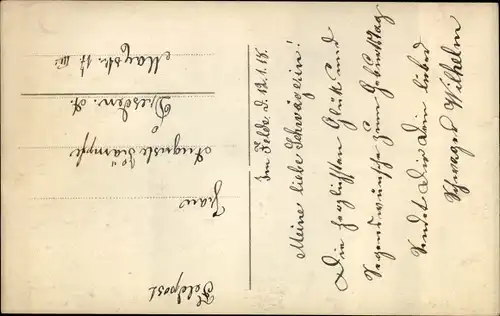 Feldpost
Frau
Auguste
Dresden. A.
Maystr. 17 III
Im Felde d. 12.1.18.
Meine liebe Schwägerin!
Die herzlichsten Glück und
Segenswünsche zum Geburtstag
sendet Dir Dein lieber
Schwager Wilhelm